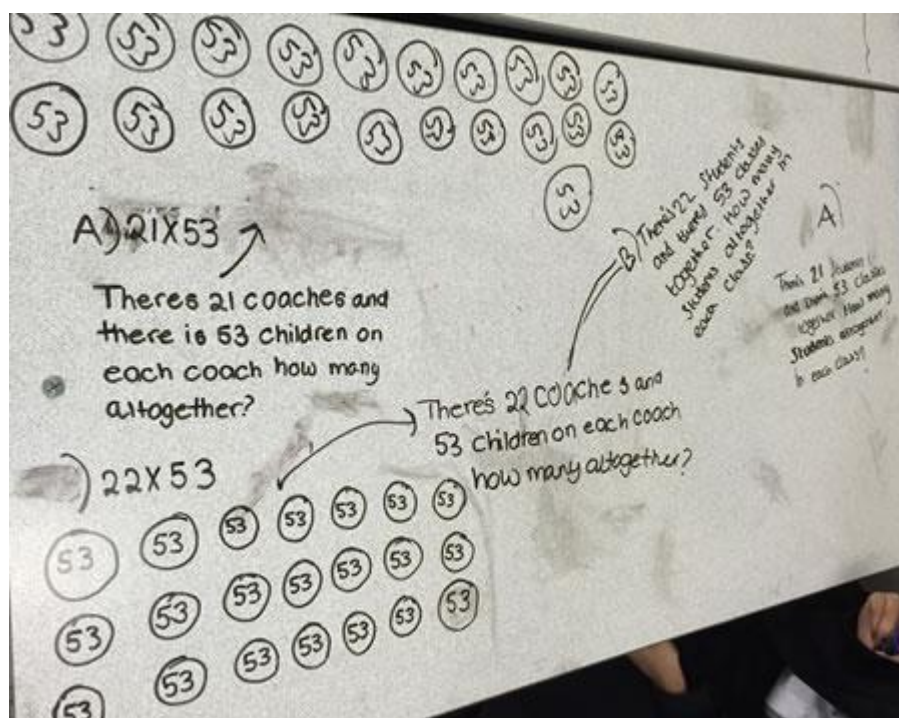 53 53 53 53 53 53 53 53 53 53
53 53 53 53 53 53 53 53 53 53
53
A) 21X53
Theres 21 coaches and
there is 53 children on
each coach how many
altogether?
B) There's 22 students
and theres 53 classes
together. How many
students altogether in
each class?
A)
Theres 21 students
and 53 classes
together How many
Students altogether
in each class?
There's 22 coaches and
53 children on each coach
how many altogether?
) 22X53
53 53 53 53 53 53 53
53 53 53 53 53 53 53
53 53 53 53 53 53 53